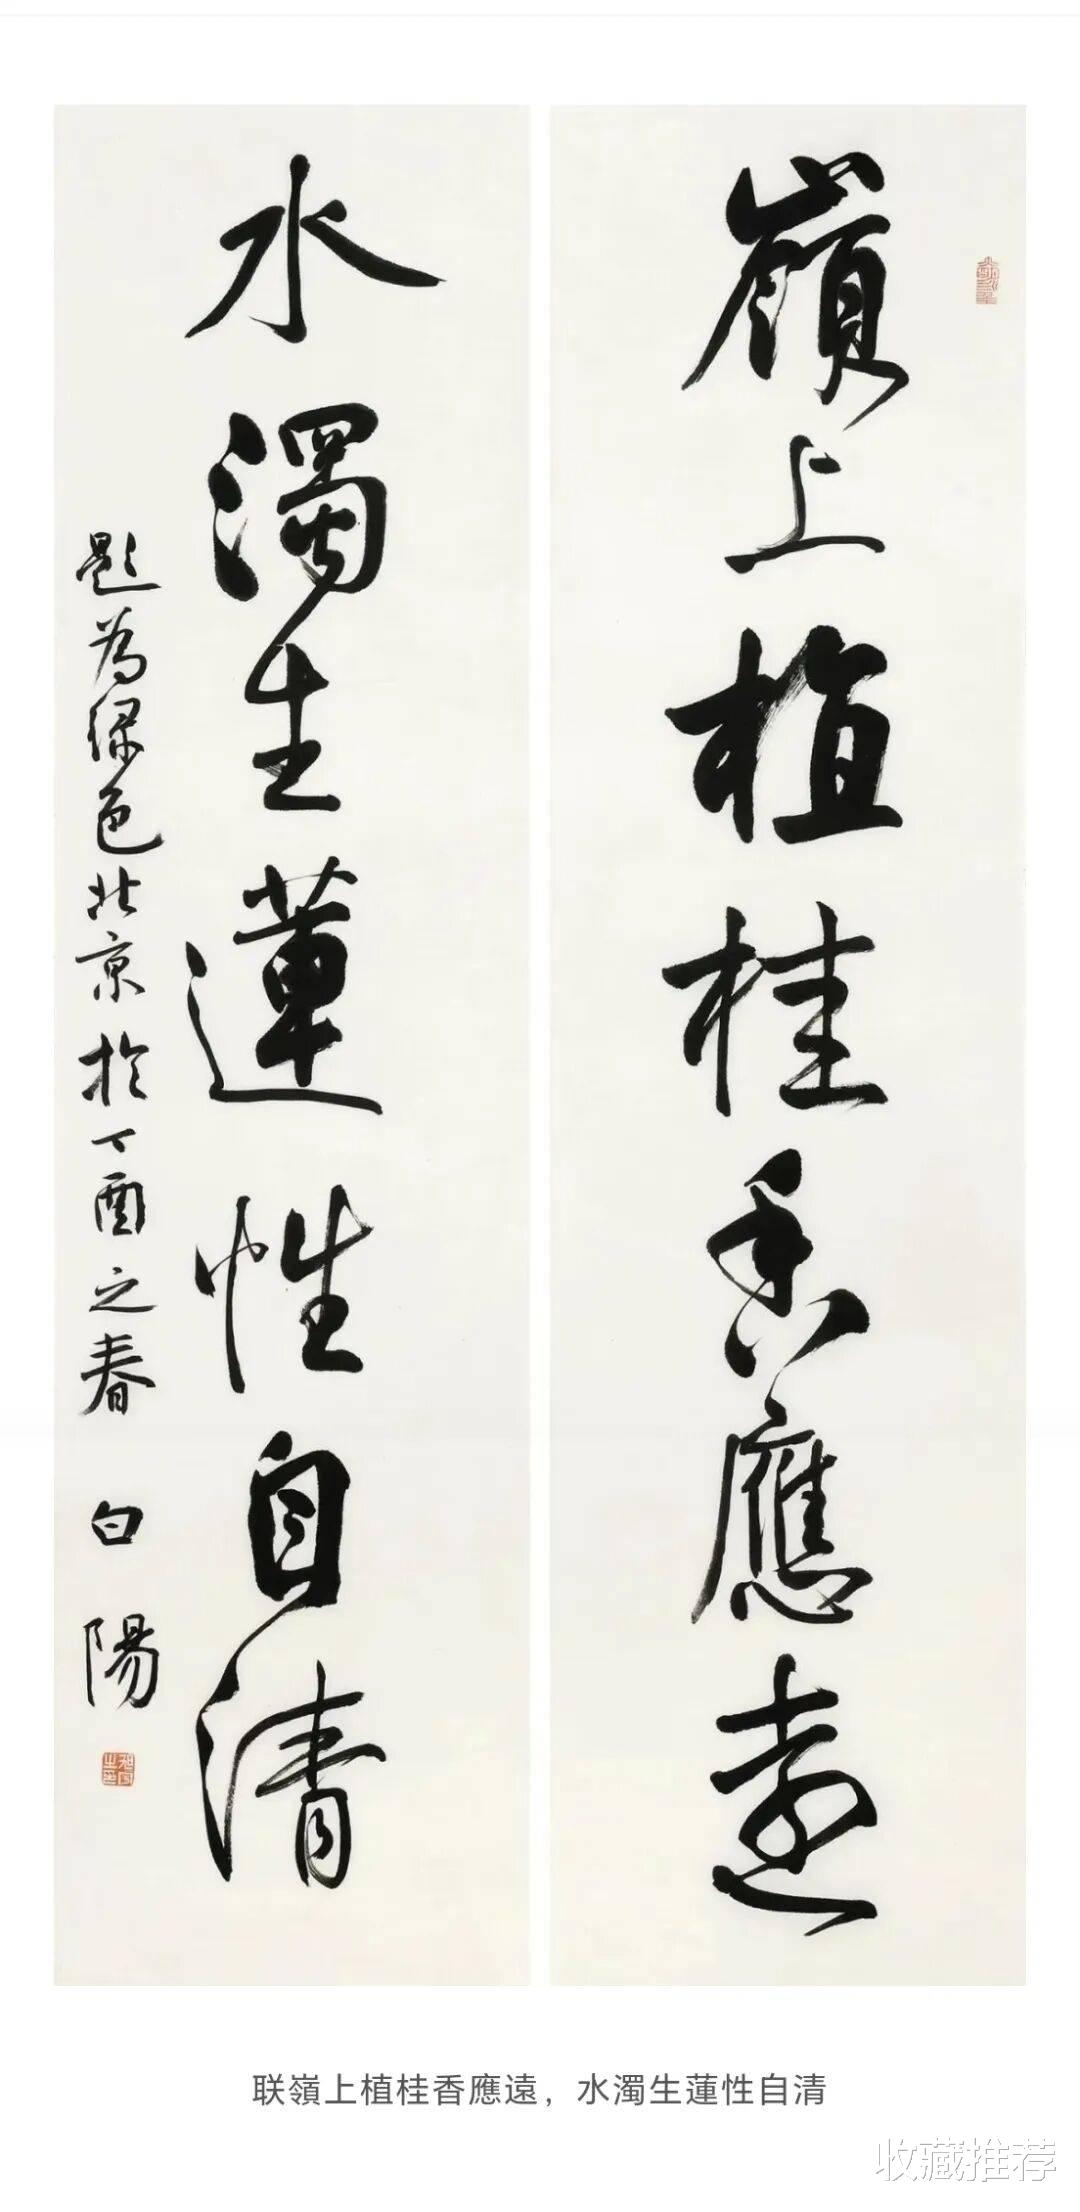 嶺上植桂香應遠
水濁生蓮性自清
題為綠色北京於丁酉之春 白陽
联嶺上植桂香應遠，水濁生蓮性自清
收藏推荐